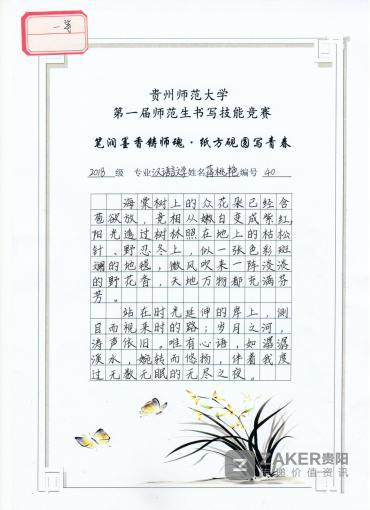 一等
贵州师范大学
第一届师范生书写技能竞赛
笔润墨香铸师魂·纸方砚圆写青春
2018 级 专业汉语言文学姓名蒋桃艳编号 40
海棠树上的众花朵已经含
苞欲放,竞相从嫩白变成紫红,
阳光透过树林照在地上的枯松
针、野忍冬上,似一张色彩斑
斓的地毯,微风吹来一阵淡淡
的野花香,天地万物都充满芬
芳。
站在时光延伸的岸上,侧
目而视来时的路;岁月之河,
涛声依旧。唯有心语,如潺潺
溪水,婉转而悠扬,伴着我度
过无数无眠的无尽之夜。
ZAKER贵阳
传递价值资讯